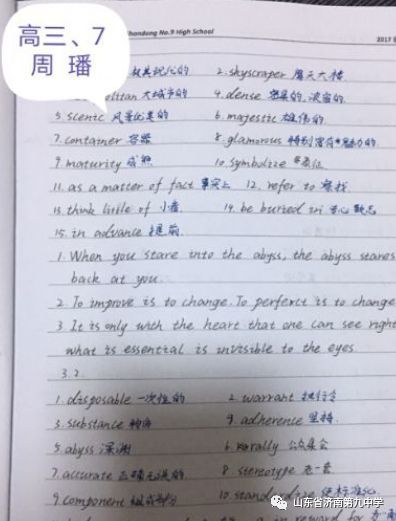 高三、7
周 璠
Shandong No.9 High School
2017
2. skyscraper 摩天大楼
大城市的 4. dense 密集的，浓密的
5. scenic 风景优美的 6. majestic 雄伟的
7. container 容器 8. glamorous 特别富有魅力的
9. maturity 成熟 10. symbolize 象征
11. as a matter of fact 事实上 12. refer to 查找
13. think little of 小看 14. be buried in
15. in advance 提前
1. When you stare into the abyss, the abyss stares
back at you
2. To improve is to change. To perferct is to change
3. It is only with the heart that one can see right
what is essential is invisible to the eyes.
3.2.
1. disposable 一次性的 2. warrant 执行令
3. substance 物质 4. adherence 坚持
5. abyss 深渊 6. rally 公众集会
7. accurate 正确无误的 8. stereotype 老一套
9. component 组成部分 10.
reward for
山东省济南第九中学